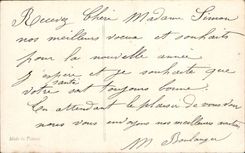 Recevez Chère Madame Simon
nos meilleurs voeux et souhaits
pour la nouvelle année
J'espère et je souhaite que
votre santé est toujours bonne.
En attendant le plaisir de vous
nous vous envoyons nos meilleures
M Boulanger